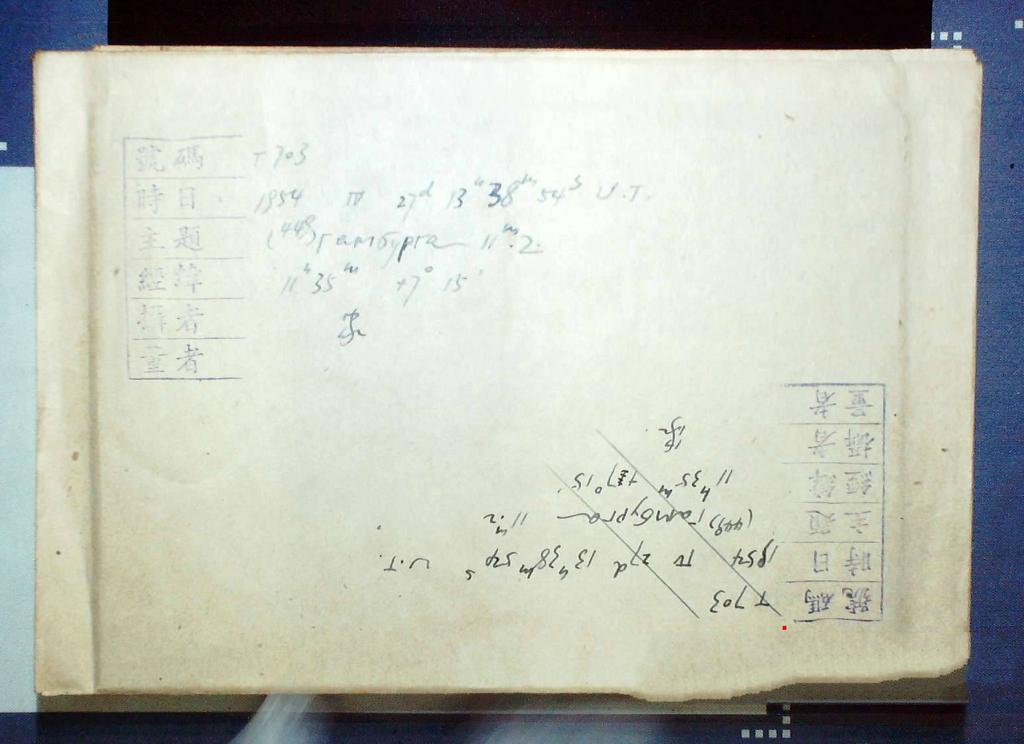 號碼 T 703
時日 1954 IV 27d 13h 38m 54s U.T.
主題 (449) Гамбурга 11m.2
經緯 11h 35m +7° 15'
攝者
量者
號碼 T 703
時日 1954 IV 27d 13h 38m 54s U.T.
主題 (449) Гамбурга 11m.2
經緯 11h 35m +7° 15'
攝者
量者